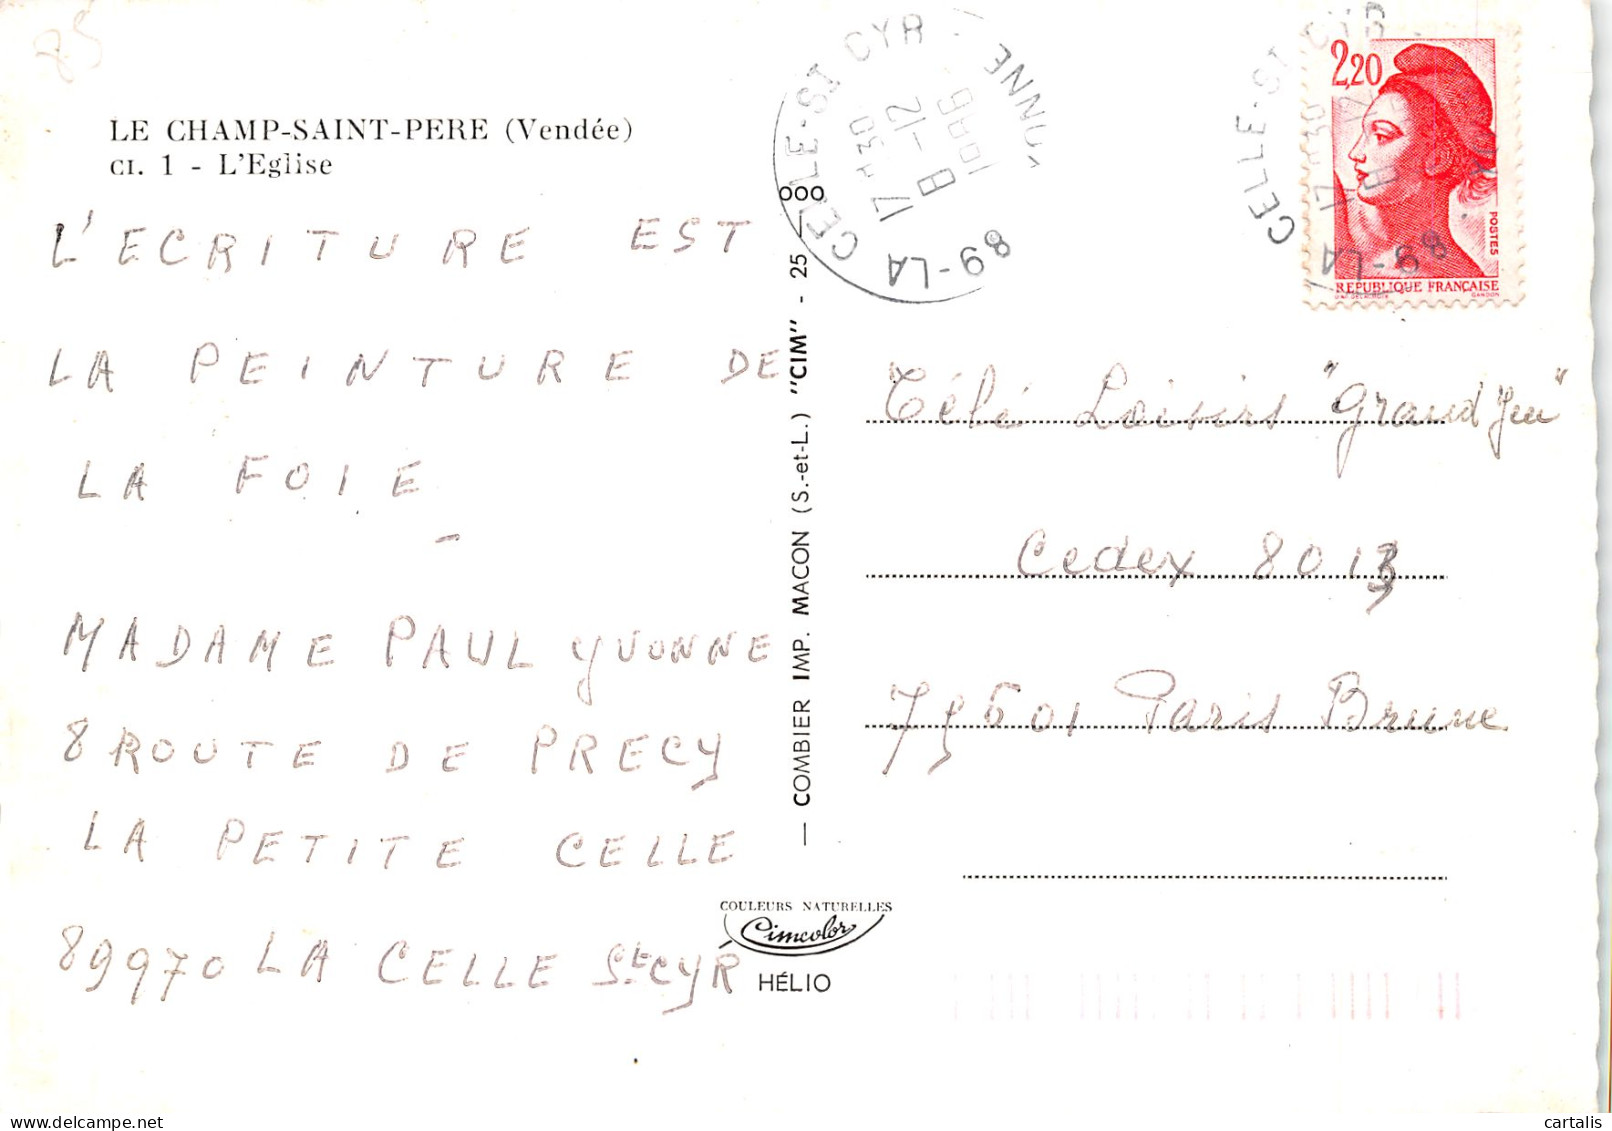 85
LE CHAMP-SAINT-PERE (Vendée)
CI. 1 - L'Eglise
L'ECRITURE EST
LA PEINTURE DE
LA FOIE
MADAME PAUL YVONNE
8 ROUTE DE PRECY
LA PETITE CELLE
89970 LA CELLE St CYR
— COMBIER IMP. MACON (S.-et-L.) "CIM" - 25 —
000
COULEURS NATURELLES
Cimcolor
HÉLIO
89-LA CELLE-ST CYR
YONNE
17 H 30
8 -12
1986
2,20
POSTES
REPUBLIQUE FRANÇAISE
GANDON
CELLE-ST CYR
17 H 30
89-LA
Télé Loisirs "Grand Jeu"
Cedex 8013
75501 Paris Brune
cartalis